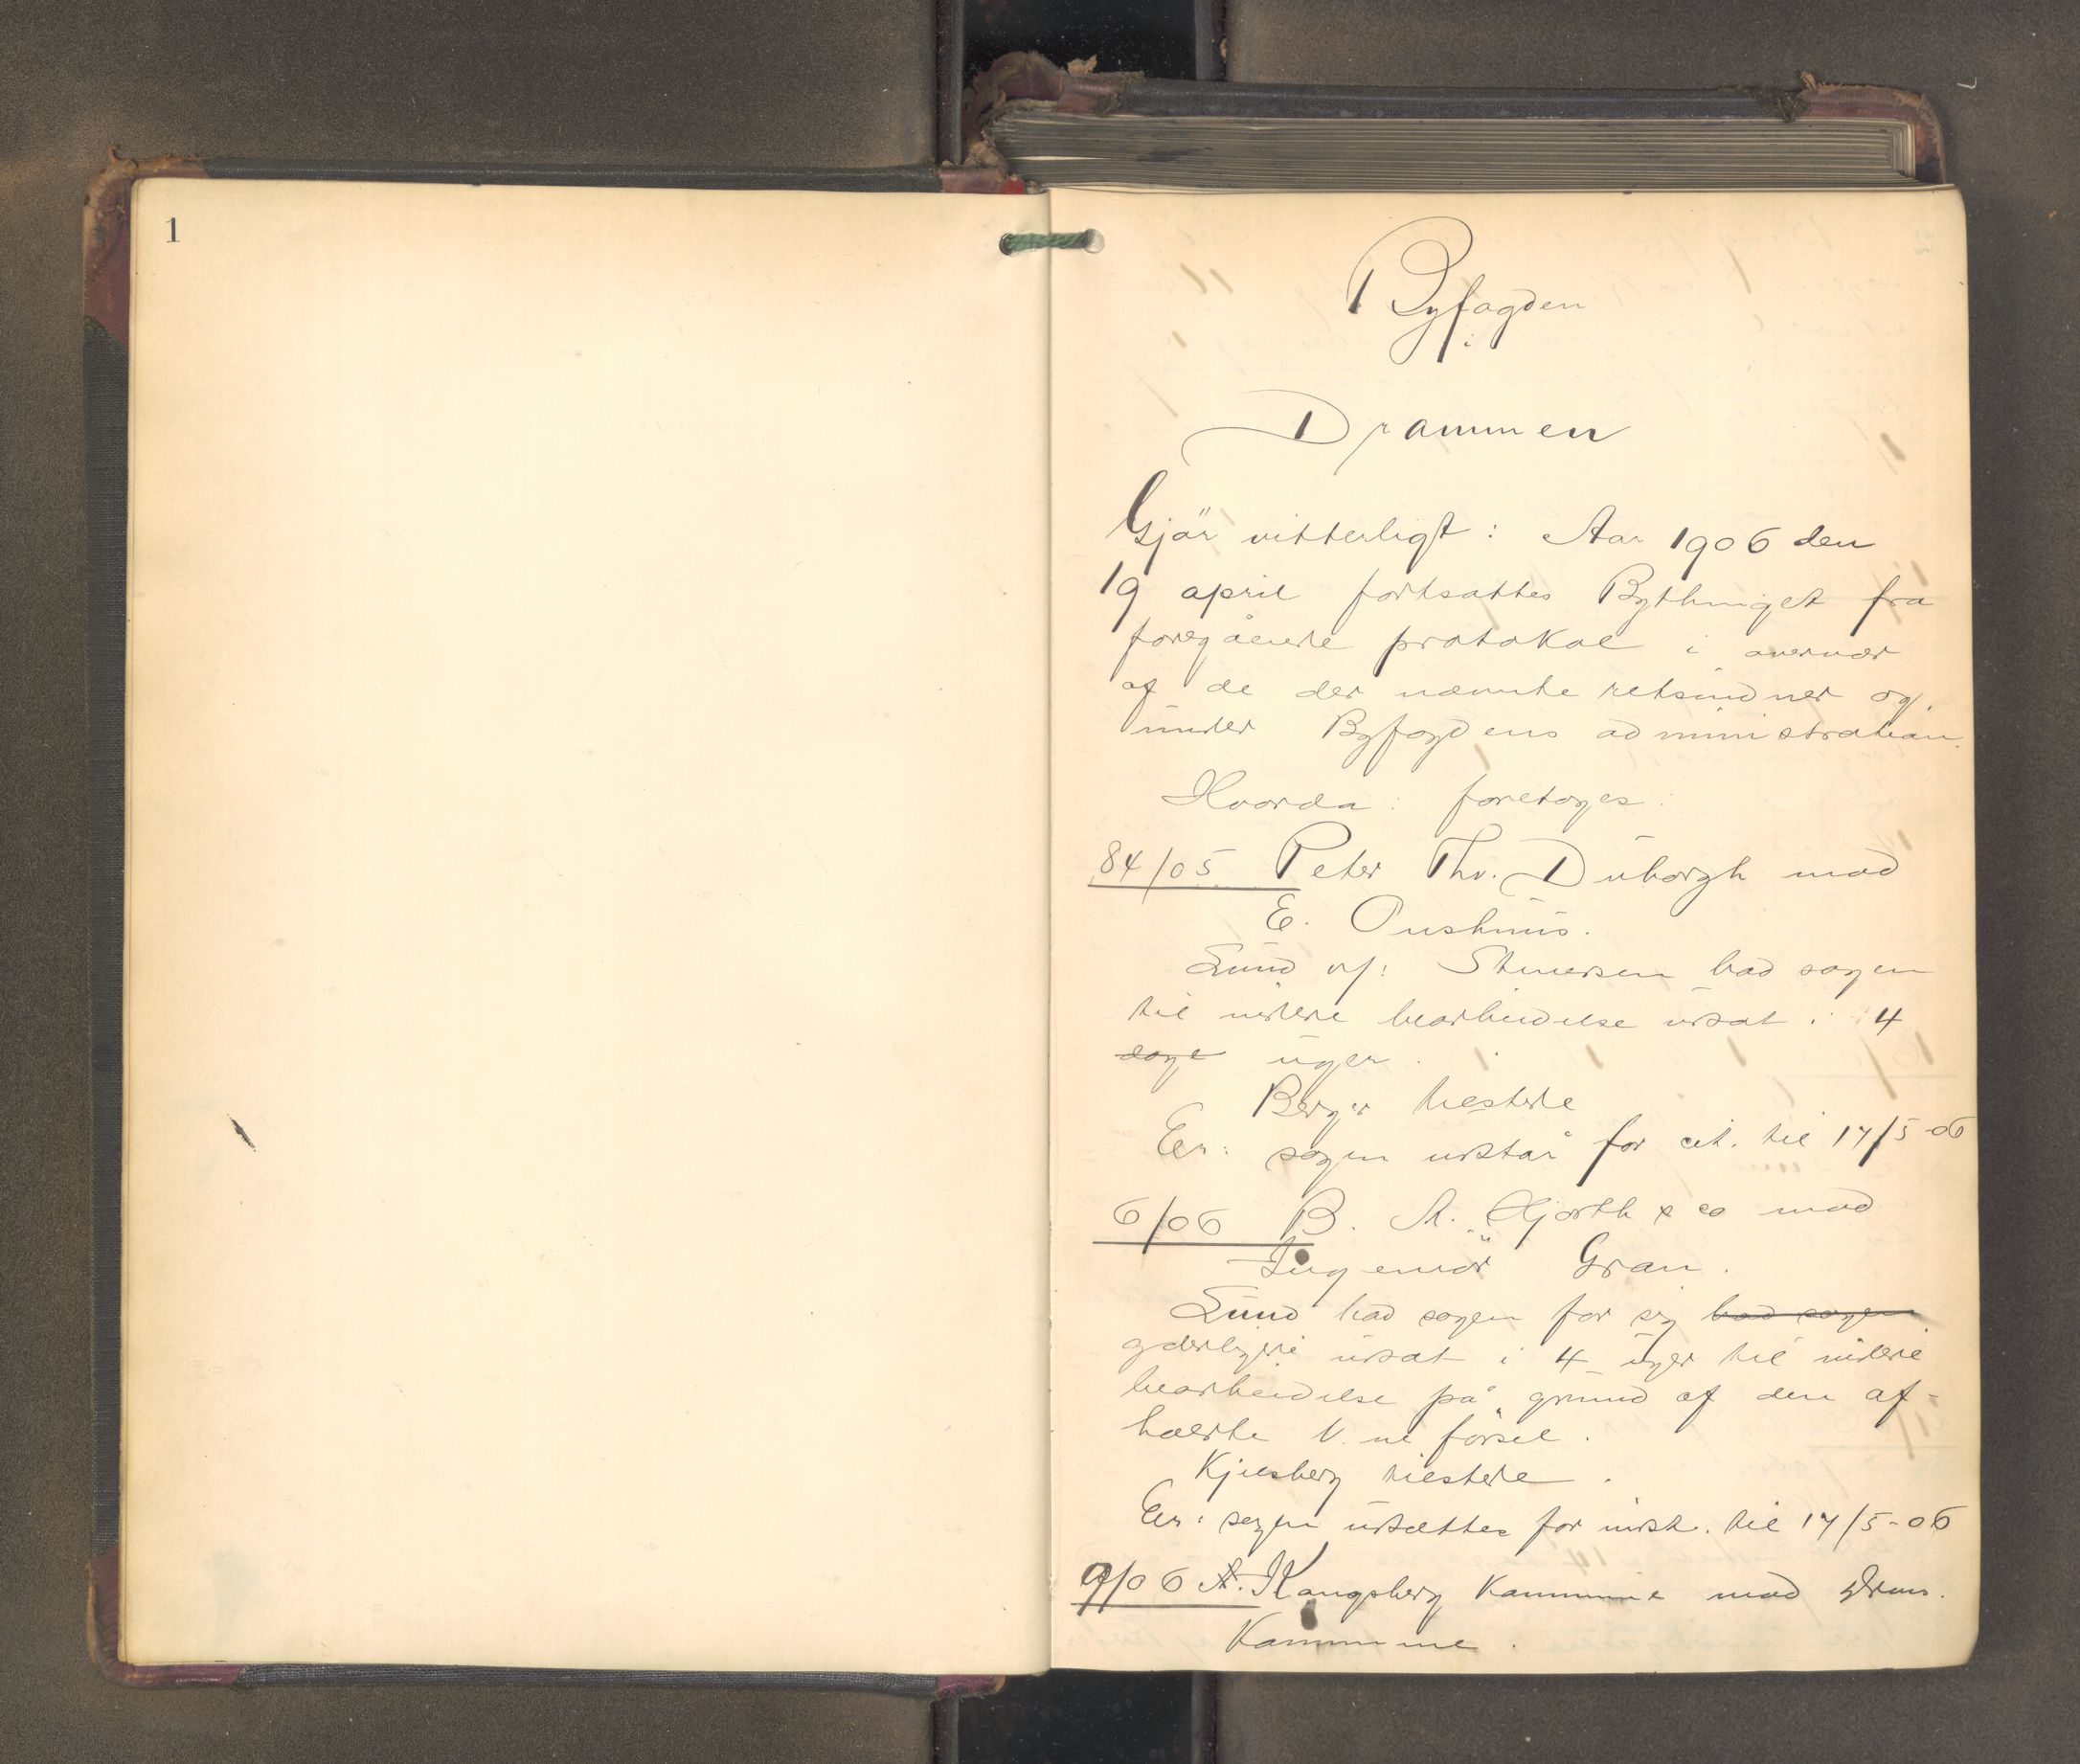 1
Byfogden
i
Drammen
Gjør vitterligt: Aar 1906 den
19 april fortsattes Bythinget fra
foregående protokol i overvær
af de der nævnte retsvidner og
under Byfogdens administration.
Hvorda: foretoges:
84/05 Peter Thv. Duborgh mod
E.
Lund vf: bad sagen
til videre bearbeidelse udsat i 4
dage uger.
Berger tilstede
Er: sagen udstår for cit. til 17/5-06
6/06 B. A. Hjorth & co mod
Ingeniør Gran.
Lund bad sagen for sig bad sagen
yderligere udsat i 4 uger til videre
bearbeidelse på grund af den af-
holdte v. ne førsel.
Kjelsberg tilstede.
Er: sagen udsættes for indst. til 17/5-06
9/06 A. Kongsberg Kommune mod Dram.
Kommune.